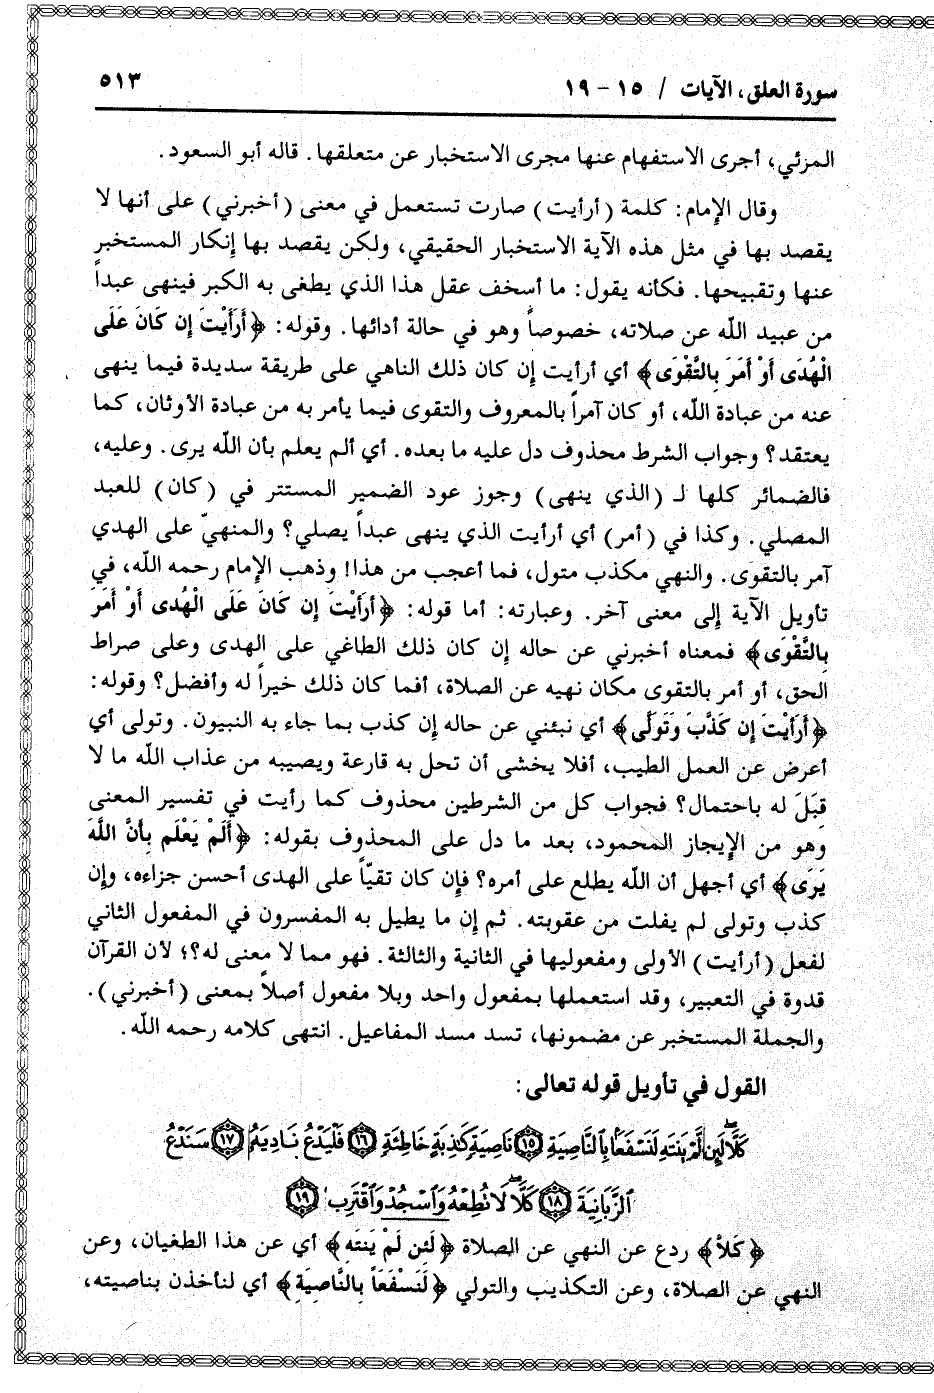 سورة العلق، الآيات / ١٥ - ١٩ ٥١٣
المرئي، أجرى الاستفهام عنها مجرى الاستخبار عن متعلقها. قاله أبو السعود.
وقال الإمام: كلمة (أرأيت) صارت تستعمل في معنى (أخبرني) على أنها لا
يقصد بها في مثل هذه الآية الاستخبار الحقيقي، ولكن يقصد بها إنكار المستخبر
عنها وتقبيحها. فكأنه يقول: ما أسخف عقل هذا الذي يطغى به الكبر فينهى عبداً
من عبيد الله عن صلاته، خصوصاً وهو في حالة أدائها. وقوله: ﴿أَرَأَيْتَ إِن كَانَ عَلَى
الْهُدَى أَوْ أَمَرَ بِالتَّقْوَى﴾ أي أرأيت إن كان ذلك الناهي على طريقة سديدة فيما ينهى
عنه من عبادة الله، أو كان آمراً بالمعروف والتقوى فيما يأمر به من عبادة الأوثان، كما
يعتقد؟ وجواب الشرط محذوف دل عليه ما بعده. أي ألم يعلم بأن الله يرى. وعليه،
فالضمائر كلها لـ (الذي ينهى) وجوز عود الضمير المستتر في (كان) للعبد
المصلي. وكذا في (أمر) أي أرأيت الذي ينهى عبداً يصلي؟ والمنهيّ على الهدي
آمر بالتقوى. والنهي مكذب متول، فما أعجب من هذا! وذهب الإمام رحمه الله، في
تأويل الآية إلى معنى آخر. وعبارته: أما قوله: ﴿أَرَأَيْتَ إِن كَانَ عَلَى الْهُدى أَوْ أَمَرَ
بِالتَّقْوَى﴾ فمعناه أخبرني عن حاله إن كان ذلك الطاغي على الهدى وعلى صراط
الحق، أو أمر بالتقوى مكان نهيه عن الصلاة، أفما كان ذلك خيراً له وأفضل؟ وقوله:
﴿أَرَأَيْتَ إِن كَذَّبَ وَتَوَلَّى﴾ أي نبئني عن حاله إن كذب بما جاء به النبيون. وتولى أي
أعرض عن العمل الطيب، أفلا يخشى أن تحل به قارعة ويصيبه من عذاب الله ما لا
قِبَلَ له باحتمال؟ فجواب كل من الشرطين محذوف كما رأيت في تفسير المعنى
وهو من الإيجاز المحمود، بعد ما دل على المحذوف بقوله: ﴿أَلَمْ يَعْلَم بِأَنَّ اللَّهَ
يَرَى﴾ أي أجهل أن الله يطلع على أمره؟ فإن كان تقيّاً على الهدى أحسن جزاءه، وإن
كذب وتولى لم يفلت من عقوبته. ثم إن ما يطيل به المفسرون في المفعول الثاني
لفعل (أرأيت) الأولى ومفعوليها في الثانية والثالثة. فهو مما لا معنى له؟؛ لأن القرآن
قدوة في التعبير، وقد استعملها بمفعول واحد وبلا مفعول أصلاً بمعنى (أخبرني).
والجملة المستخبر عن مضمونها، تسد مسد المفاعيل. انتهى كلامه رحمه الله.
القول في تأويل قوله تعالى:
كَلَّا لَئِن لَّمْ يَنتَهِ لَنَسْفَعًا بِالنَّاصِيَةِ ١٥ نَاصِيَةٍ كَٰذِبَةٍ خَاطِئَةٍ ١٦ فَلْيَدْعُ نَادِيَهُۥ ١٧ سَنَدْعُ
ٱلزَّبَانِيَةَ ١٨ كَلَّا لَا نُطِعْهُ وَٱسْجُدْ وَٱقْتَرِب ١٩
﴿كَلَّا﴾ ردع عن النهي عن الصلاة ﴿لَئِن لَمْ يَنتَهِ﴾ أي عن هذا الطغيان، وعن
النهي عن الصلاة، وعن التكذيب والتولي ﴿لَنَسْفَعَاً بِالنَّاصِيَةِ﴾ أي لنأخذن بناصيته،